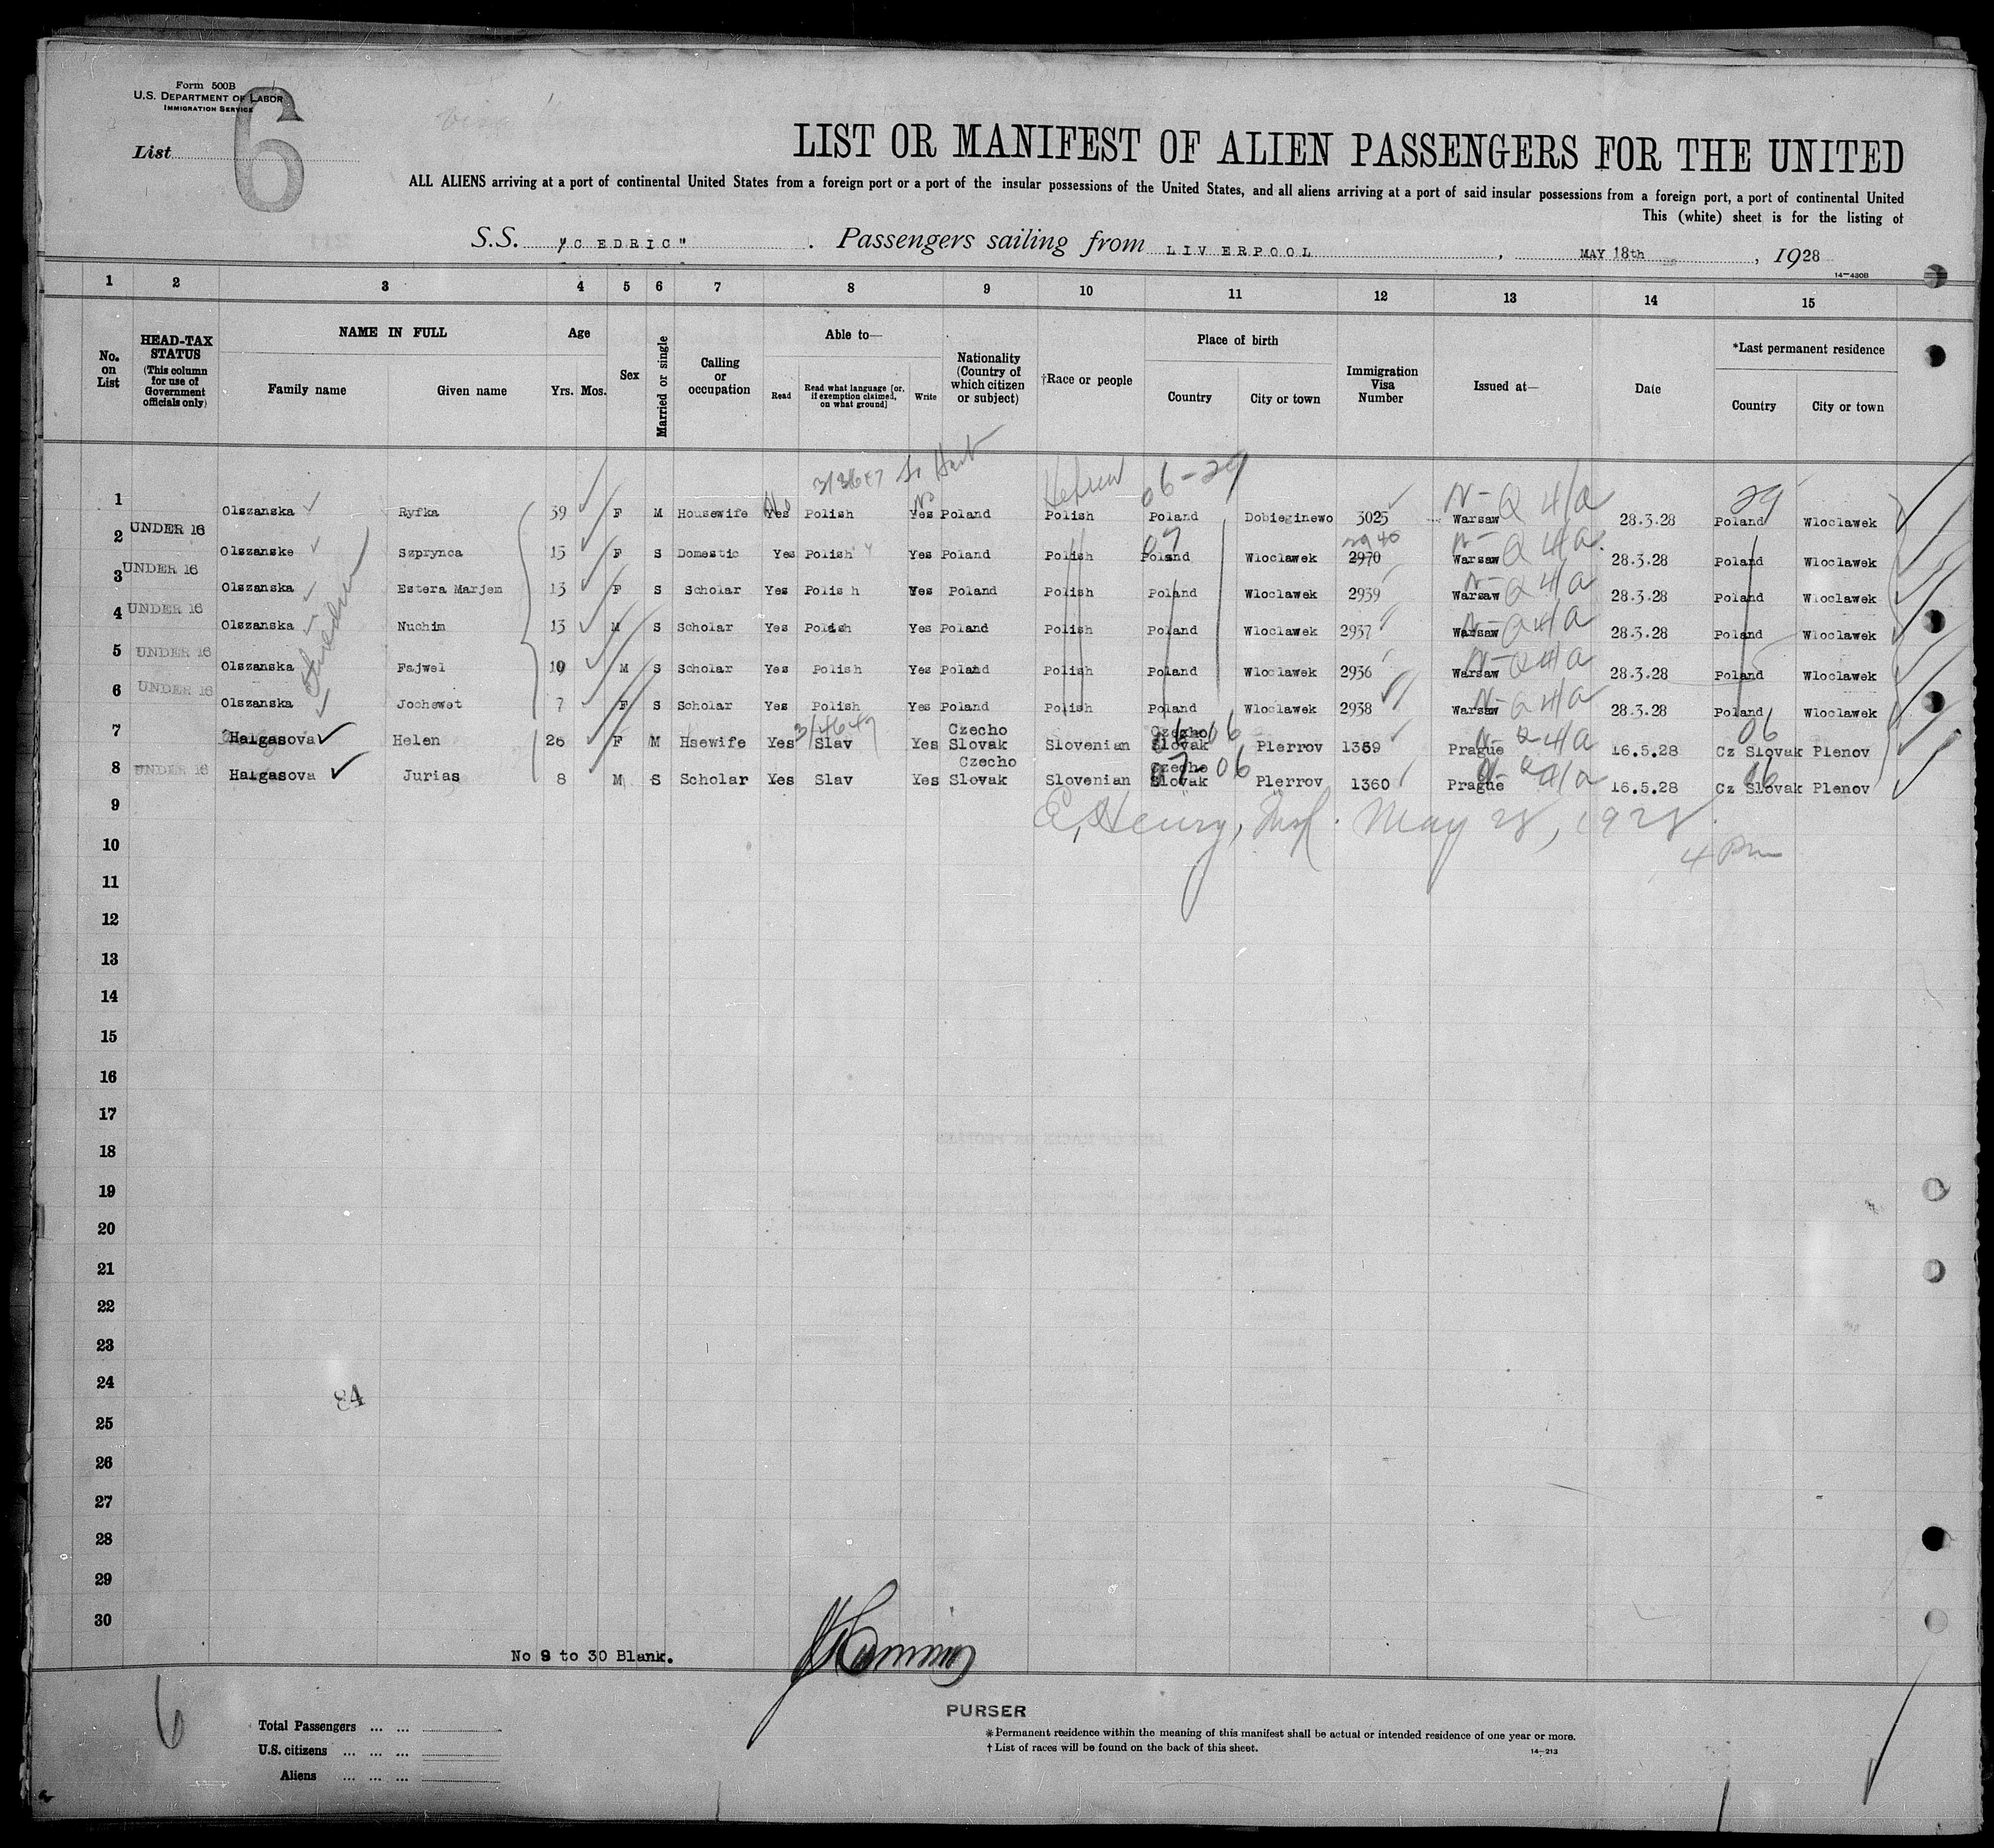 Form 500B
U.S. DEPARTMENT OF LABOR
IMMIGRATION SERVICE
List 6
LIST OR MANIFEST OF ALIEN PASSENGERS FOR THE UNITED
ALL ALIENS arriving at a port of continental United States from a foreign port or a port of the insular possessions of the United States, and all aliens arriving at a port of said insular possessions from a foreign port, a port of continental United
This (white) sheet is for the listing of
S.S. "CEDRIC" . Passengers sailing from LIVERPOOL , MAY 18th , 1928
14—430B
1 2 3 4 5 6 7 8 9 10 11 12 13 14 15
No. on List
HEAD-TAX STATUS (This column for use of Government officials only)
NAME IN FULL
Family name Given name
Age
Yrs. Mos.
Sex
Married or single
Calling or occupation
Able to—
Read Read what language [or, if exemption claimed, on what ground] Write
Nationality (Country of which citizen or subject)
†Race or people
Place of birth
Country City or town
Immigration Visa Number
Issued at—
Date
*Last permanent residence
Country City or town
Hebrew 06-29 29
1 Olszanska Ryfka 39 F M Housewife Yes No Polish Yes No Poland Polish Poland Dobieginewo 3025 Warsaw N- Q 4/a 28.3.28 Poland Wloclawek
2 UNDER 16 Olszanske Szprynca 15 F S Domestic Yes Polish Yes Poland Polish Poland 07 Wloclawek 2970 2940 Warsaw N- Q 4/a 28.3.28 Poland Wloclawek
3 UNDER 16 Olszanska Estera Marjem 13 F S Scholar Yes Polish Yes Poland Polish Poland Wloclawek 2939 Warsaw N- Q 4/a 28.3.28 Poland Wloclawek
4 UNDER 16 Olszanska Nuchim 13 M S Scholar Yes Polish Yes Poland Polish Poland Wloclawek 2937 Warsaw N- Q 4/a 28.3.28 Poland Wloclawek
5 UNDER 16 Olszanska Fajwel 10 M S Scholar Yes Polish Yes Poland Polish Poland Wloclawek 2936 Warsaw N- Q 4/a 28.3.28 Poland Wloclawek
6 UNDER 16 Olszanska Jochewet 7 F S Scholar Yes Polish Yes Poland Polish Poland Wloclawek 2938 Warsaw N- Q 4/a 28.3.28 Poland Wloclawek
7 Halgasova Helen 26 F M Hsewife Yes Slav Yes Czecho Slovak Slovenian Czecho Slovak 06 Plerrov 1359 Prague N- Q 4/a 16.5.28 Cz Slovak 06 Plenov
8 UNDER 16 Halgasova Jurias 8 M S Scholar Yes Slav Yes Czecho Slovak Slovenian Czecho Slovak 07-06 Plerrov 1360 Prague N- Q 4/a 16.5.28 Cz Slovak 06 Plenov
9 E, Henry, Insp. May 28, 1928.
10 4 Pm
11
12
13
14
15
16
17
18
19
20
21
22
23
24
84
25
26
27
28
29
30
No 9 to 30 Blank.
6
PURSER
Total Passengers ... ...
U.S. citizens ... ... ...
Aliens ... ... ...
*Permanent residence within the meaning of this manifest shall be actual or intended residence of one year or more.
†List of races will be found on the back of this sheet.
14—213